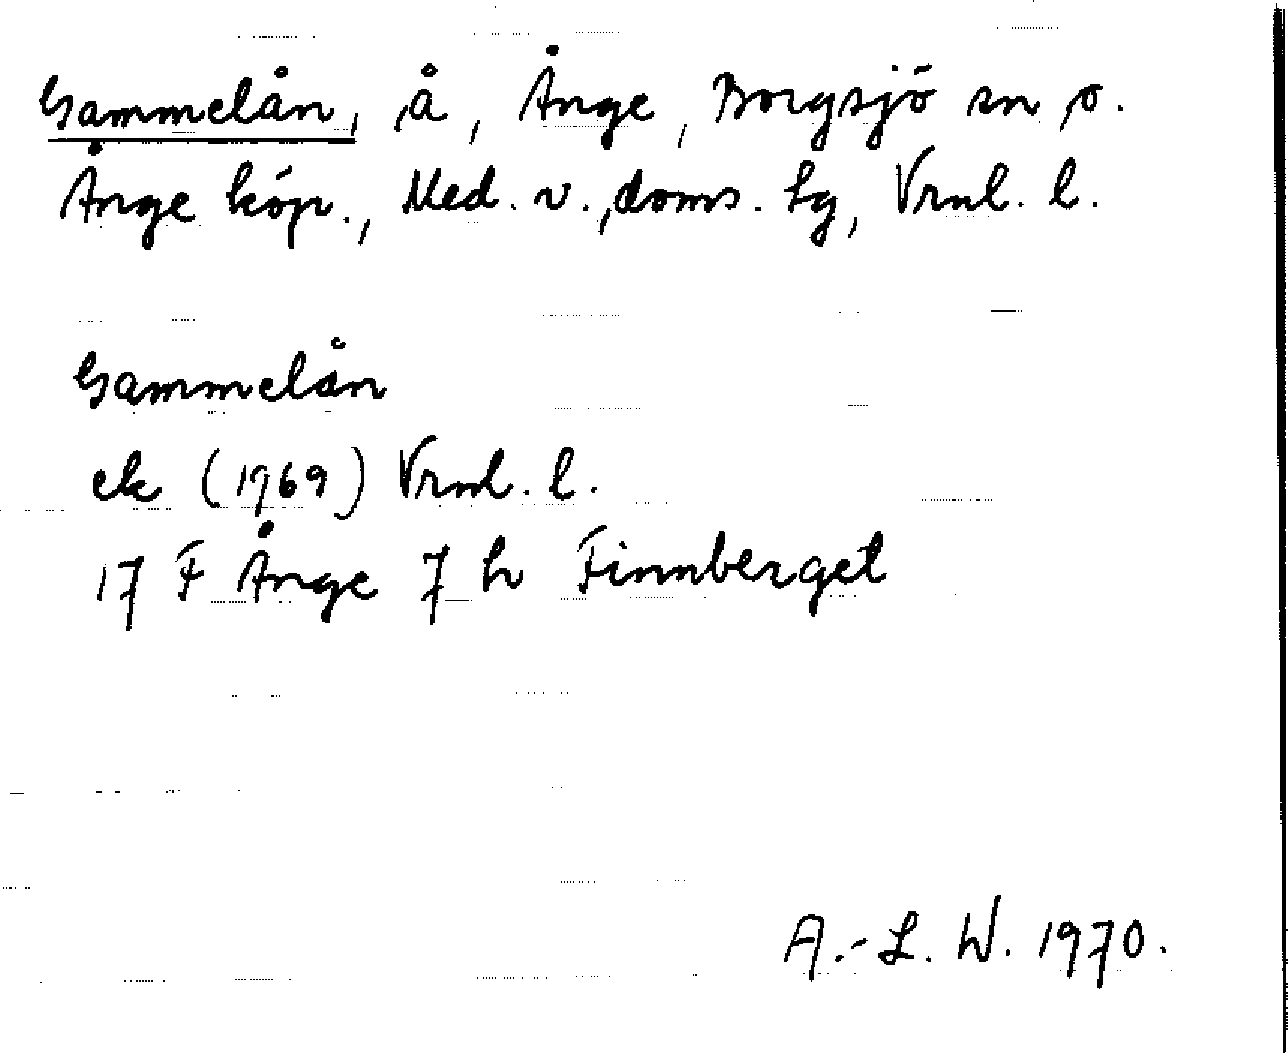 Gammelån, å, Ånge, Borgsjö sn o.
Ånge köp., Med. v. doms. tg, Vrnl. l.
Gammelån
ek (1969) Vrnl. l.
17 F Ånge 7 h Finnberget
A.-L. W. 1970.